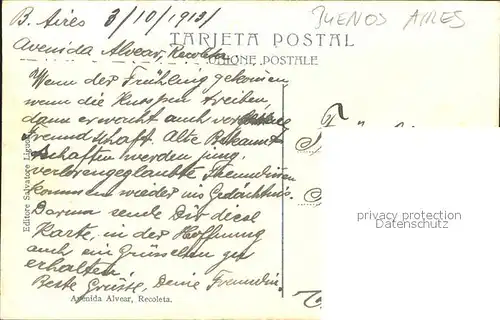 B. Aires 3/10/1913/
BUENOS AIRES
TARJETA POSTAL
UNIONE POSTALE
Avenida Alvear, Recoleta
Wenn der Frühling gekommen,
wenn die Knospen treiben,
dann erwacht auch
Freundschaft. Alte Bekannt
schaften werden jung,
verlorengeglaubte Freundinnen
kommen wieder ins Gedächtnis.
Darum sende Dir diese
Karte, in der Hoffnung
auch ein Grüsschen zu
erhalten.
Beste Grüsse, Deine Freundin.
Avenida Alvear, Recoleta.
Editore Salvatore
privacy protection
Datenschutz